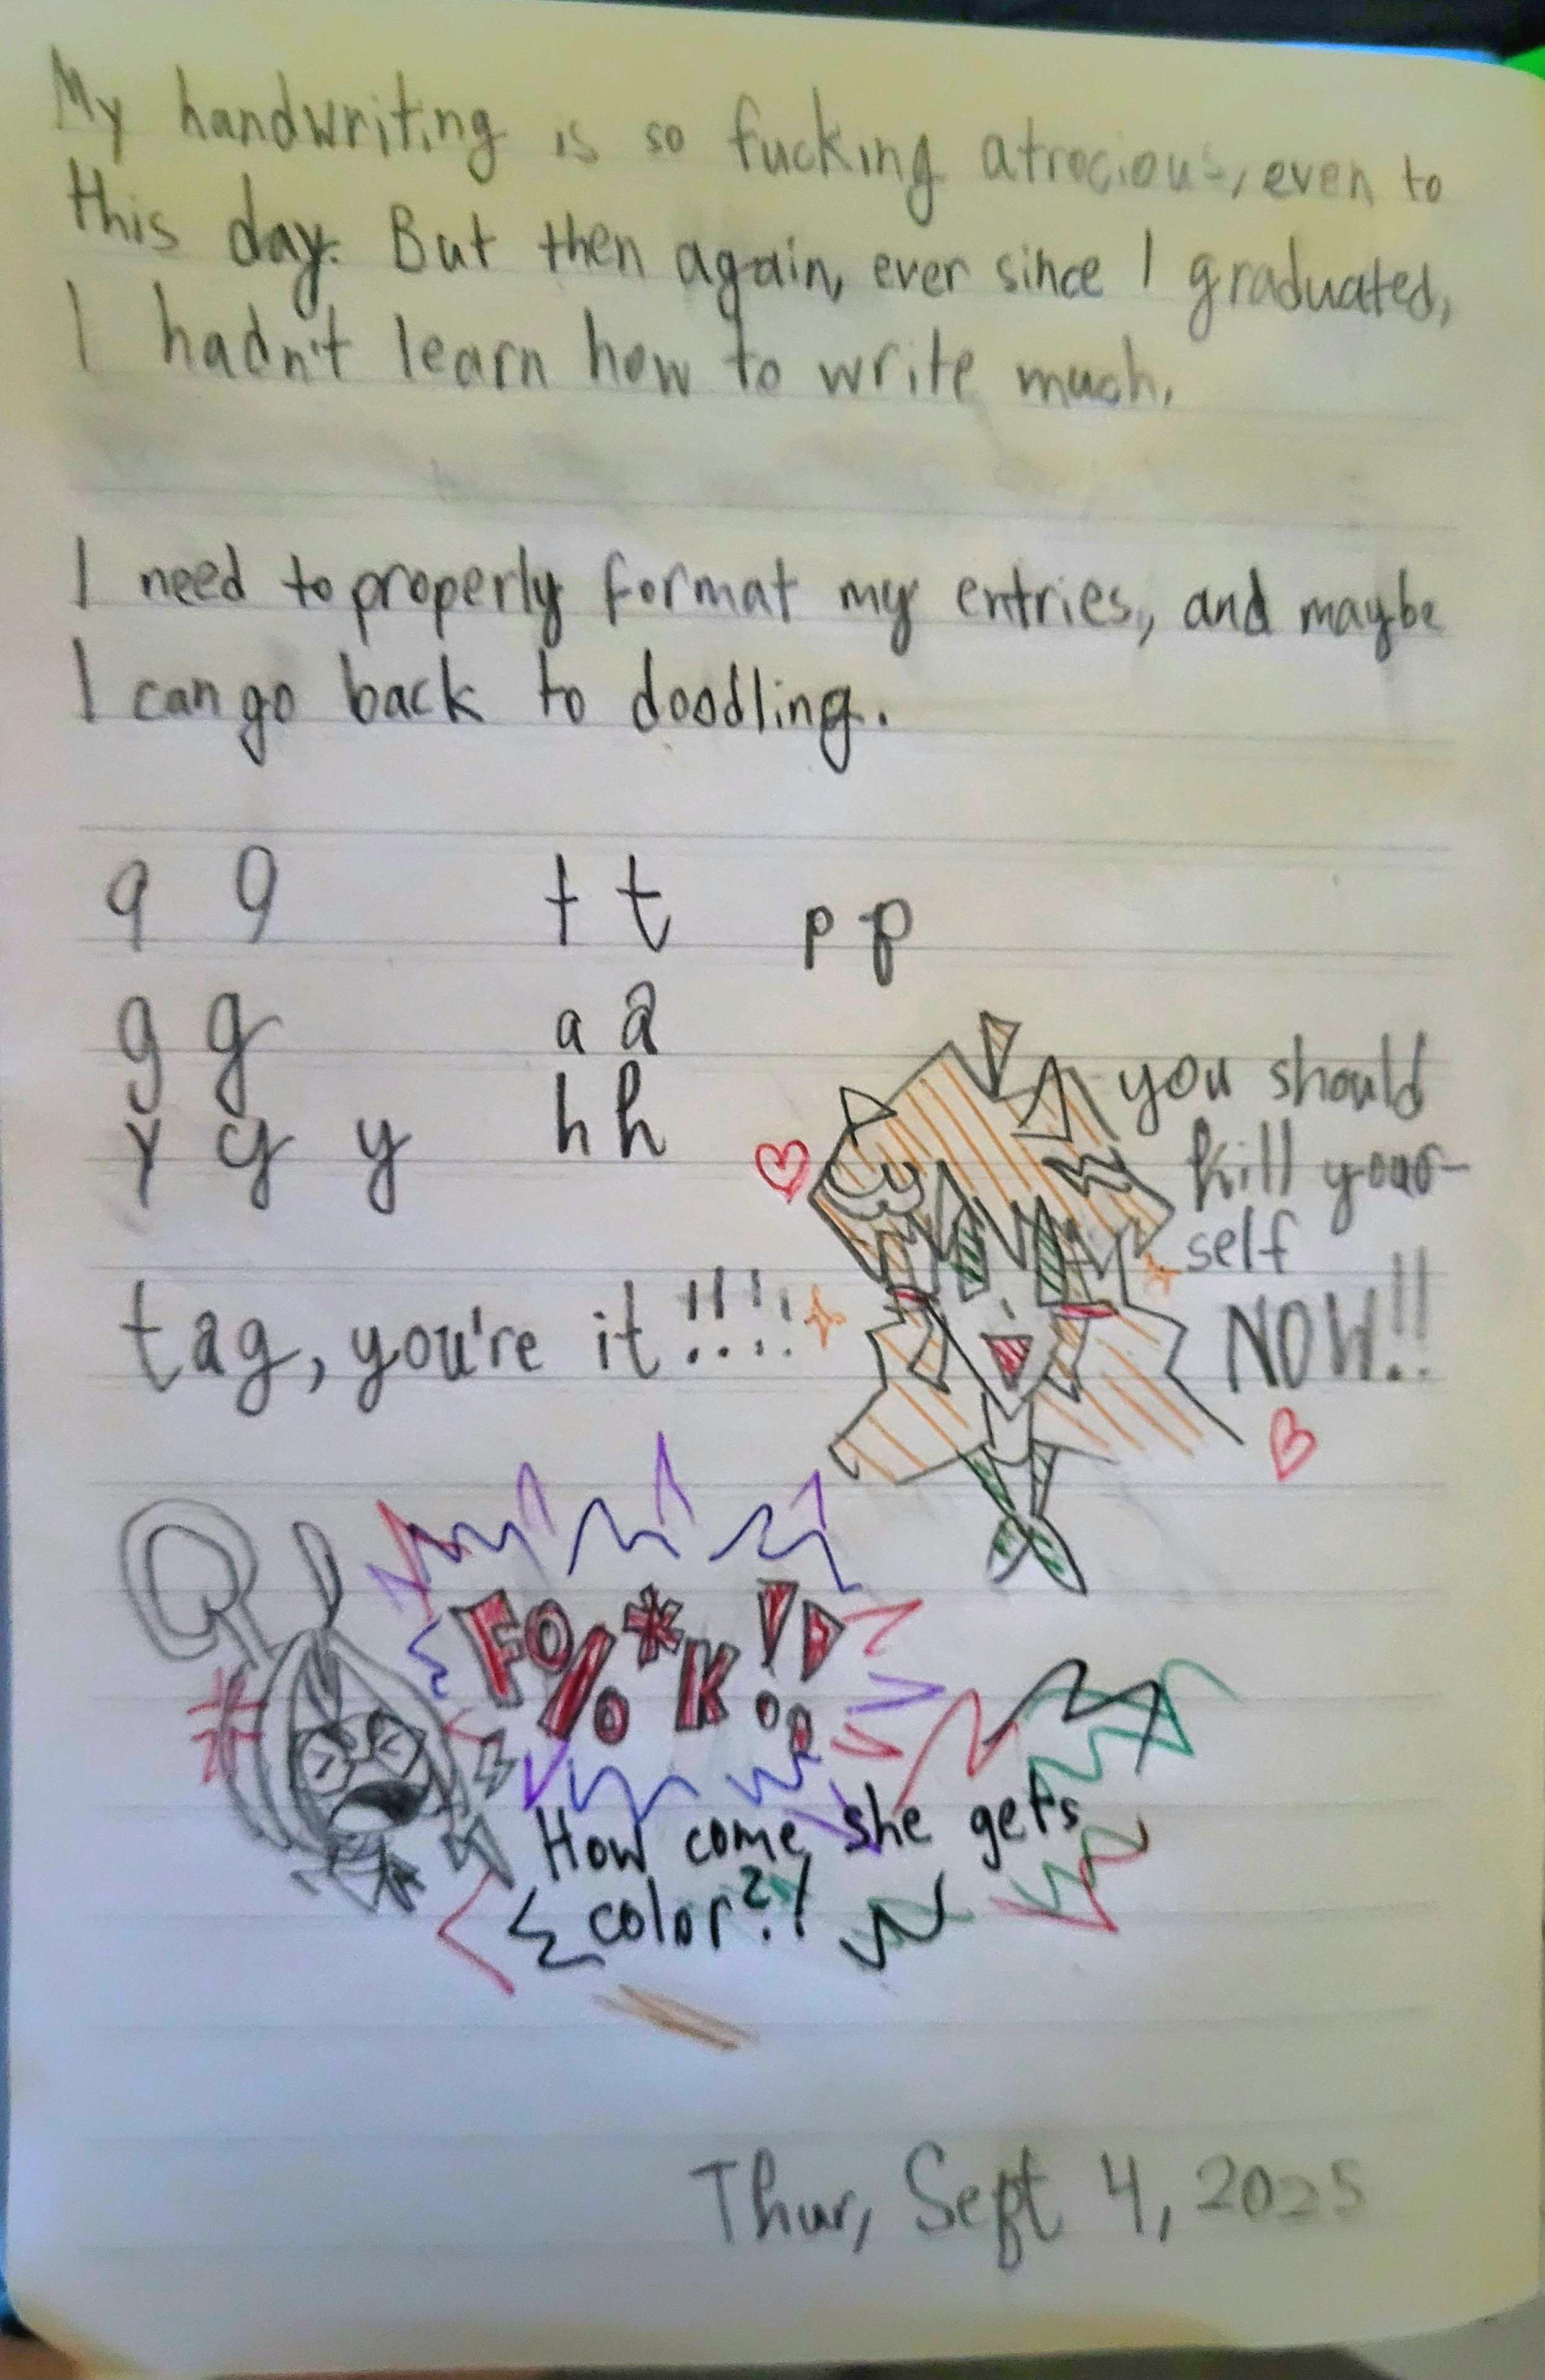 My handwriting is so fucking atrocious, even to
this day. But then again, ever since I graduated,
I hadn't learn how to write much.
I need to properly format my entries, and maybe
I can go back to doodling.
q q t t p p
g g a a
y y y h h
you should
kill your-
self
NOW!!
tag, you're it!!!!
F%*K!!
How come she gets
color?!
Thur, Sept 4, 2025